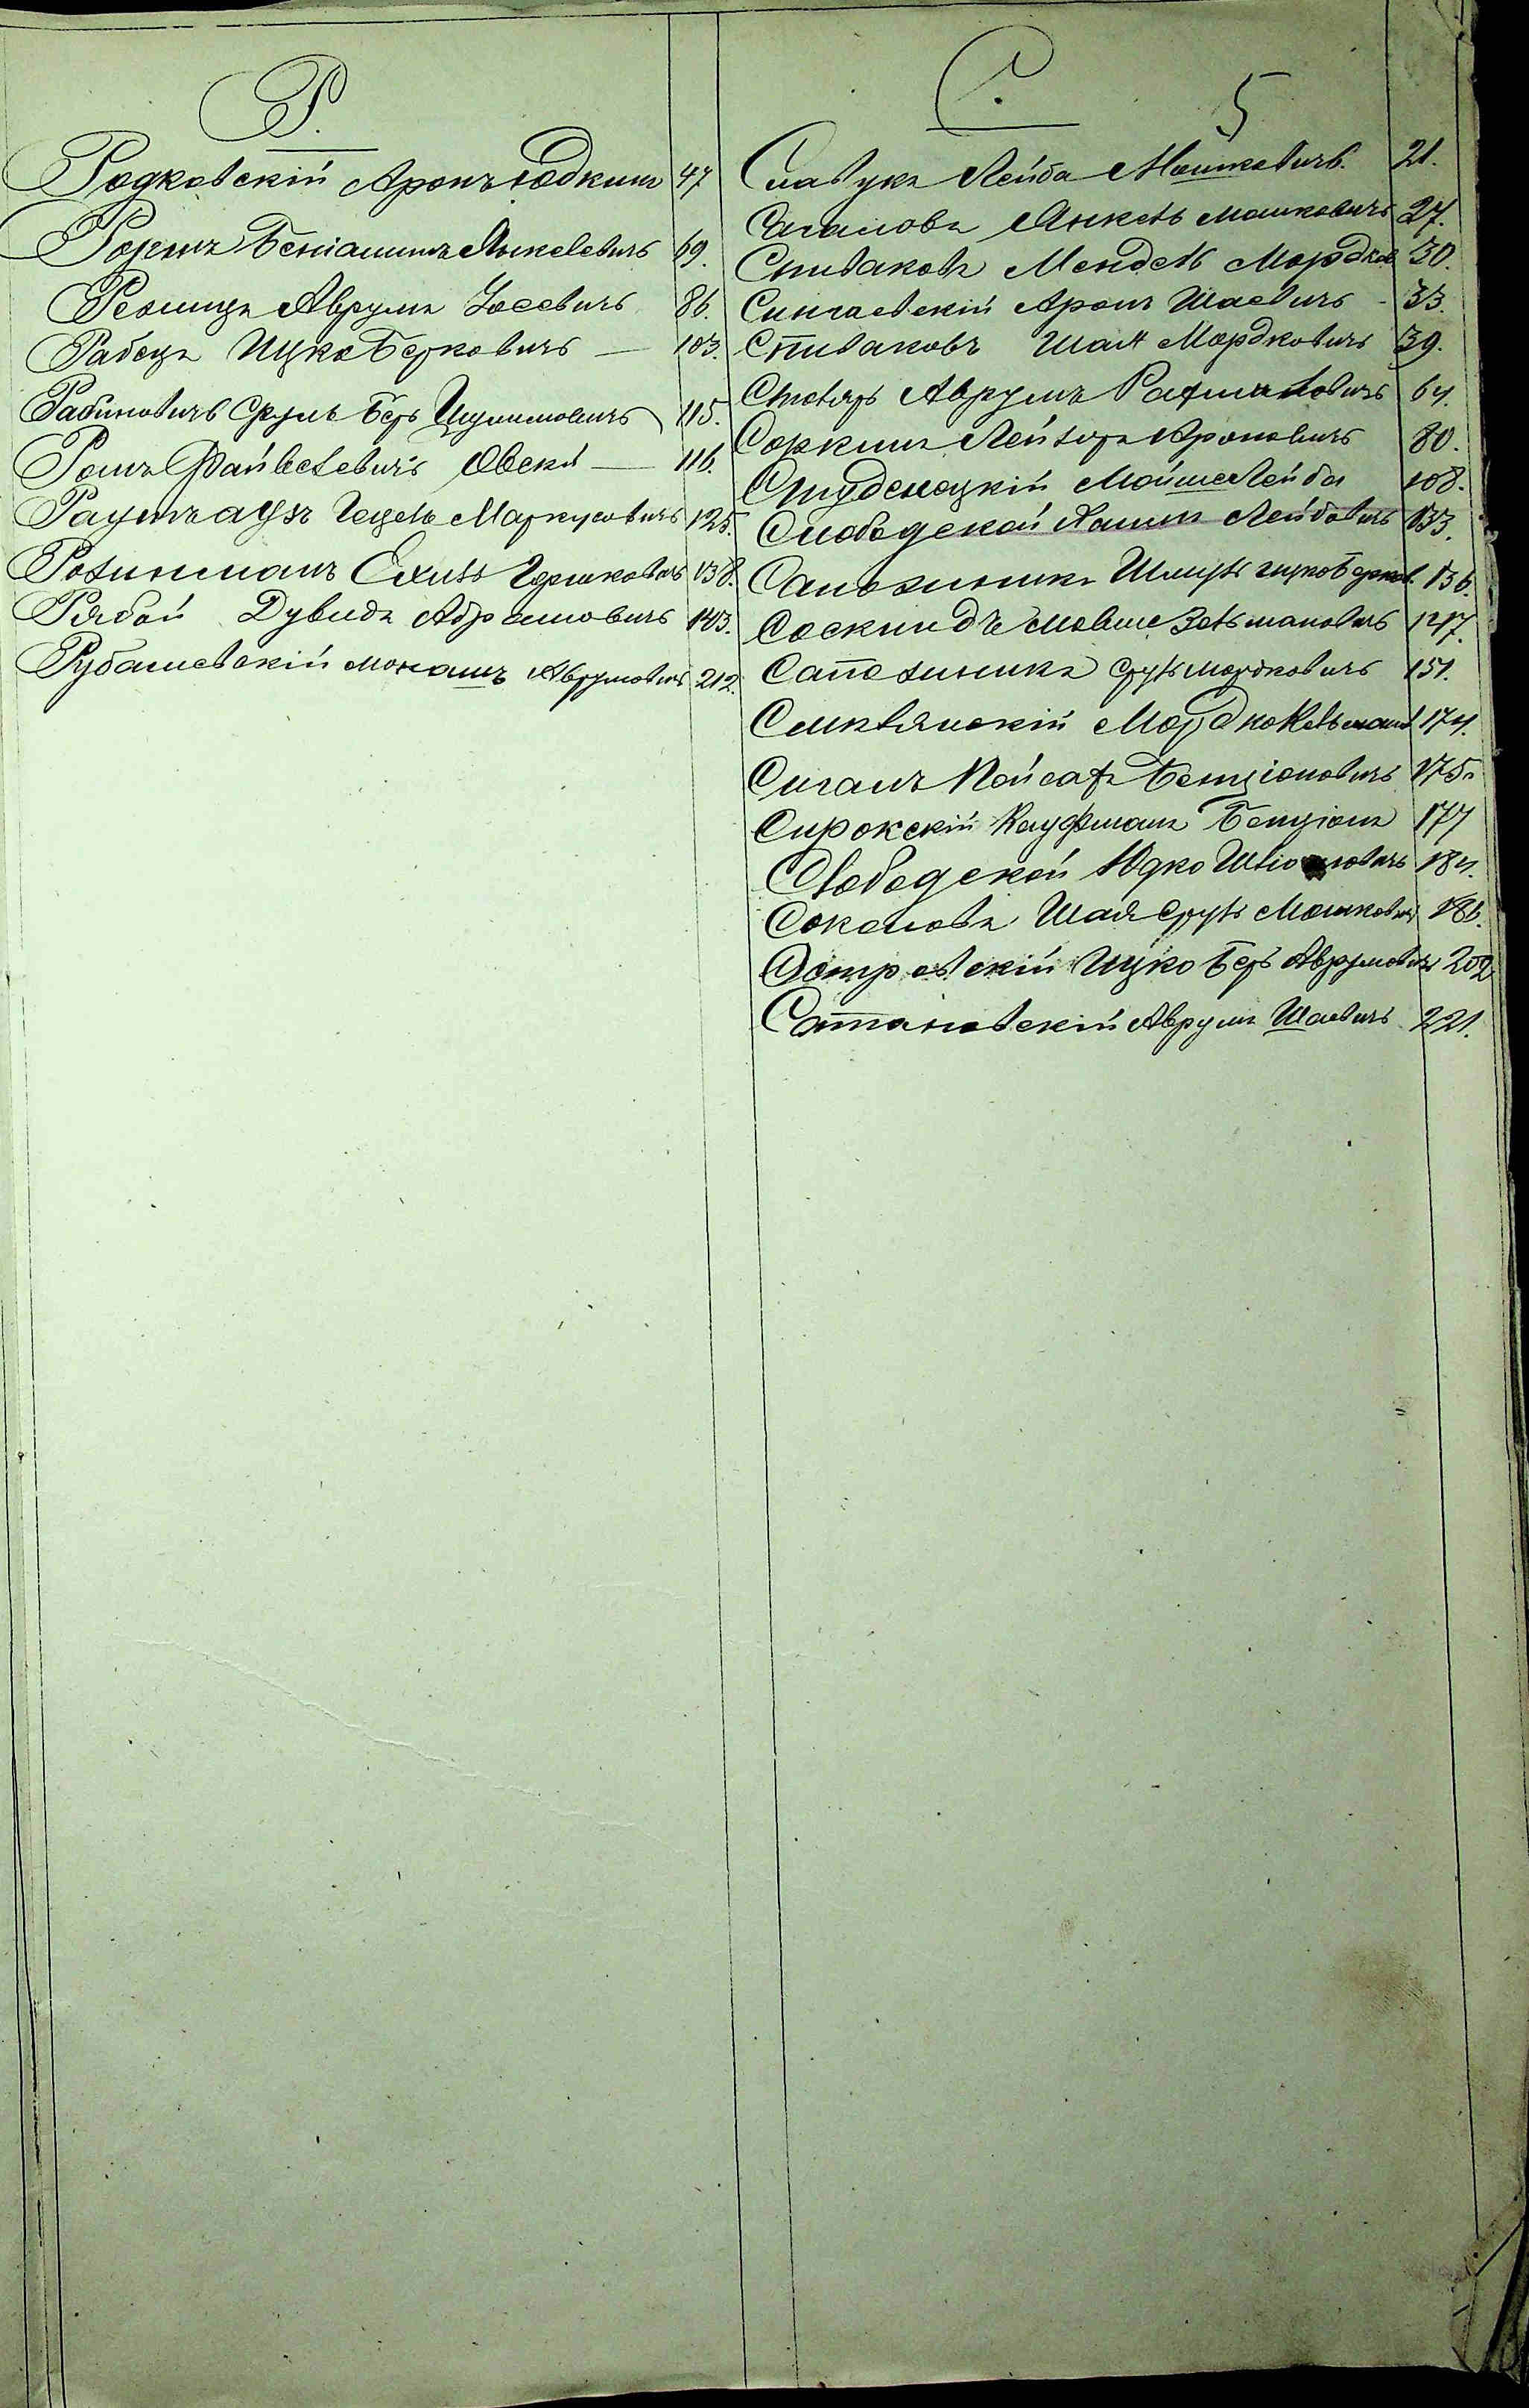 Р.
Родковскій Аронъ Юдкинъ 47
Роремъ Беніаминъ Янкелевичъ 69.
Резницъ Аврумъ Іосевичъ 86.
Рабецъ Ицко Берковичъ — 103.
Рабиновичъ Срулъ Беръ 115.
Ромъ Файвелевичъ Овсей — 116.
Раутъаузъ Гецель Маркусовичъ 125.
Ройнманъ Ехиль Гершковичъ 138.
Рябой Дувидъ Абрамовичъ 143.
Рубашевскій Монашъ Аврумовичъ 212.
С.
5
Славукъ Лейба Мошковичъ. 21.
Сагаловъ Янкель Мошковичъ 27.
Спиваковъ Мендель Мордков 30.
Сингаевскій Аронъ Шаевичъ - 33.
Спиваковъ Шая Мордковичъ 39.
Столяръ Аврумъ Рахмиловичъ 64.
Соркинъ Лейзоръ Ароновичъ 80.
Студенецкій Мойше Лейба 108.
Слободской Хаимъ Лейбовичъ 133.
Сапожникъ Шмуль Ицков 136.
Соскиндъ Мовше Зельмановичъ 147.
Сапожникъ Сруль Мордковичъ 151.
Смилянскій Мордко Кельман 174.
Сиганъ Пейсахъ Бенціоновичъ 175.
Сирокскій Кауфманъ Бенціонъ 177
Слободской Юдко 184.
Соколовъ Шая Сруль Мошковичъ 186.
Островскій Ицко Беръ Аврумовичъ 202
Сатановскій Аврумъ Шаевичъ 221.